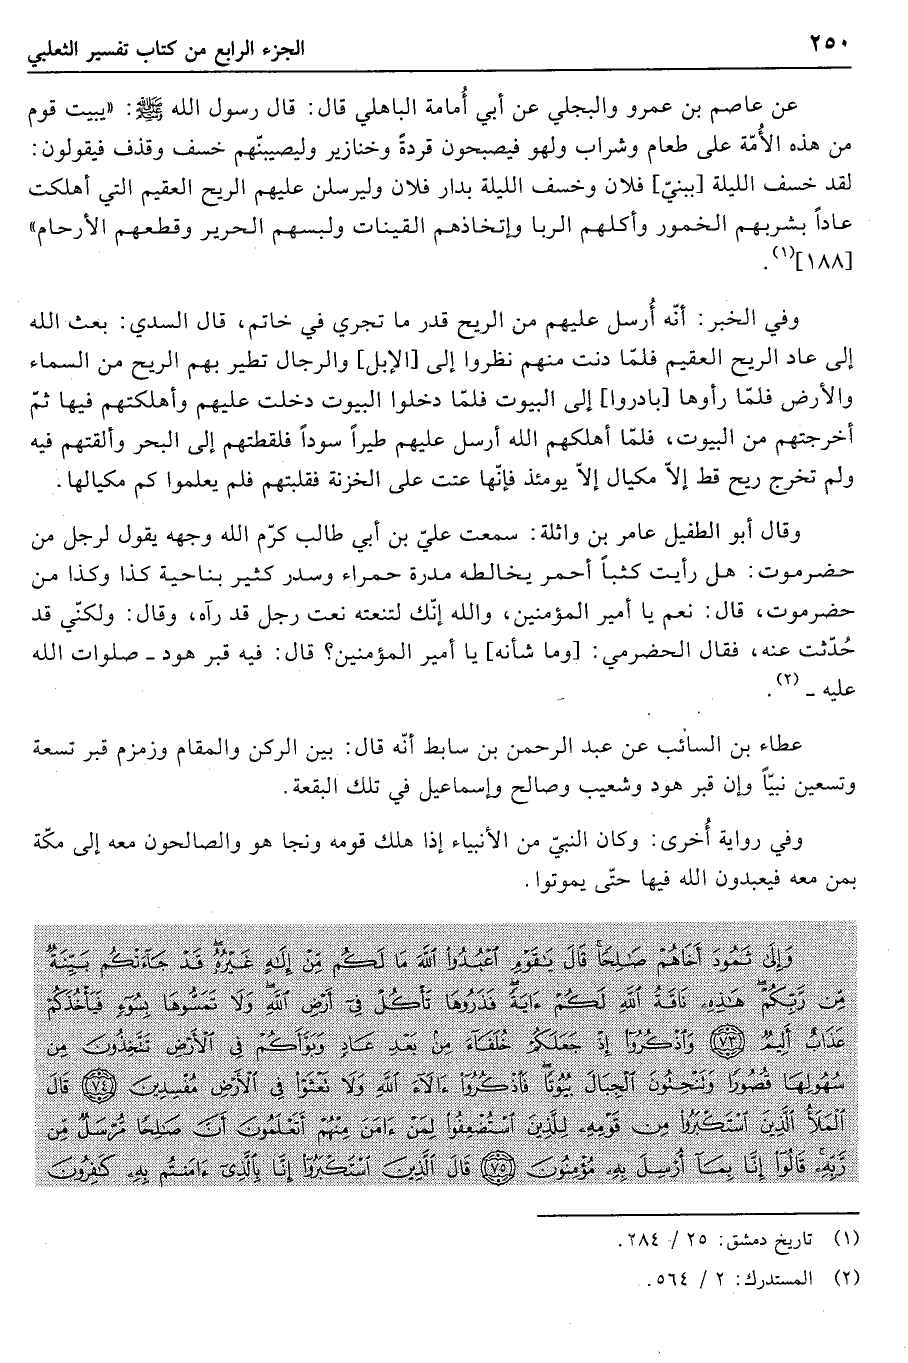 ٢٥٠
الجزء الرابع من كتاب تفسير الثعلبي
عن عاصم بن عمرو والبجلي عن أبي أُمامة الباهلي قال: قال رسول الله ﷺ: «يبيت قوم
من هذه الأُمّة على طعام وشراب ولهو فيصبحون قردةً وخنازير وليصيبنّهم خسف وقذف فيقولون:
لقد خسف الليلة [ببنيّ] فلان وخسف الليلة بدار فلان وليرسلن عليهم الريح العقيم التي أهلكت
عاداً بشربهم الخمور وأكلهم الربا وإتخاذهم القينات ولبسهم الحرير وقطعهم الأرحام»
[١٨٨](١).
وفي الخبر: أنّه أُرسل عليهم من الريح قدر ما تجري في خاتم، قال السدي: بعث الله
إلى عاد الريح العقيم فلمّا دنت منهم نظروا إلى [الإبل] والرجال تطير بهم الريح من السماء
والأرض فلمّا رأوها [بادروا] إلى البيوت فلمّا دخلوا البيوت دخلت عليهم وأهلكتهم فيها ثمّ
أخرجتهم من البيوت، فلمّا أهلكهم الله أرسل عليهم طيراً سوداً فلقطتهم إلى البحر وألقتهم فيه
ولم تخرج ريح قط إلاّ مكيال إلاّ يومئذ فإنّها عتت على الخزنة فقلبتهم فلم يعلموا كم مكيالها.
وقال أبو الطفيل عامر بن واثلة: سمعت عليّ بن أبي طالب كرّم الله وجهه يقول لرجل من
حضرموت: هل رأيت كثباً أحمر يخالطه مدرة حمراء وسدر كثير بناحية كذا وكذا من
حضرموت، قال: نعم يا أمير المؤمنين، والله إنّك لتنعته نعت رجل قد رآه، وقال: ولكنّي قد
حُدّثت عنه، فقال الحضرمي: [وما شأنه] يا أمير المؤمنين؟ قال: فيه قبر هود ـ صلوات الله
عليه ـ (٢).
عطاء بن السائب عن عبد الرحمن بن سابط أنّه قال: بين الركن والمقام وزمزم قبر تسعة
وتسعين نبيّاً وإن قبر هود وشعيب وصالح وإسماعيل في تلك البقعة.
وفي رواية أُخرى: وكان النبيّ من الأنبياء إذا هلك قومه ونجا هو والصالحون معه إلى مكّة
بمن معه فيعبدون الله فيها حتّى يموتوا.
وَإِلَىٰ ثَمُودَ أَخَاهُمْ صَـٰلِحًاۚ قَالَ يَـٰقَوْمِ ٱعْبُدُوا۟ ٱللَّهَ مَا لَكُم مِّنْ إِلَـٰهٍ غَيْرُهُۥۖ قَدْ جَآءَتْكُم بَيِّنَةٌ
مِّن رَّبِّكُمْۖ هَـٰذِهِۦ نَاقَةُ ٱللَّهِ لَكُمْ ءَايَةًۖ فَذَرُوهَا تَأْكُلْ فِىٓ أَرْضِ ٱللَّهِۖ وَلَا تَمَسُّوهَا بِسُوٓءٍ فَيَأْخُذَكُمْ
عَذَابٌ أَلِيمٌ ﴿٧٣﴾ وَٱذْكُرُوٓا۟ إِذْ جَعَلَكُمْ خُلَفَآءَ مِنۢ بَعْدِ عَادٍ وَبَوَّأَكُمْ فِى ٱلْأَرْضِ تَتَّخِذُونَ مِن
سُهُولِهَا قُصُورًا وَتَنْحِتُونَ ٱلْجِبَالَ بُيُوتًاۖ فَٱذْكُرُوٓا۟ ءَالَآءَ ٱللَّهِ وَلَا تَعْثَوْا۟ فِى ٱلْأَرْضِ مُفْسِدِينَ ﴿٧٤﴾ قَالَ
ٱلْمَلَأُ ٱلَّذِينَ ٱسْتَكْبَرُوا۟ مِن قَوْمِهِۦ لِلَّذِينَ ٱسْتُضْعِفُوا۟ لِمَنْ ءَامَنَ مِنْهُمْ أَتَعْلَمُونَ أَنَّ صَـٰلِحًا مُّرْسَلٌ مِّن
رَّبِّهِۦۚ قَالُوٓا۟ إِنَّا بِمَآ أُرْسِلَ بِهِۦ مُؤْمِنُونَ ﴿٧٥﴾ قَالَ ٱلَّذِينَ ٱسْتَكْبَرُوٓا۟ إِنَّا بِٱلَّذِىٓ ءَامَنتُم بِهِۦ كَـٰفِرُونَ
(١) تاريخ دمشق: ٢٥ / ٢٨٤.
(٢) المستدرك: ٢ / ٥٦٤.